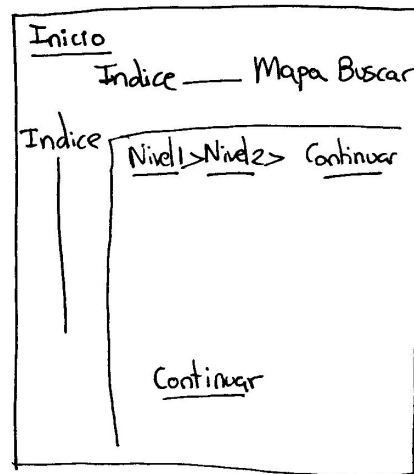 Inicio
Indice Mapa Buscar
Indice
Nivel1>Nivel2> Continuar
Continuar